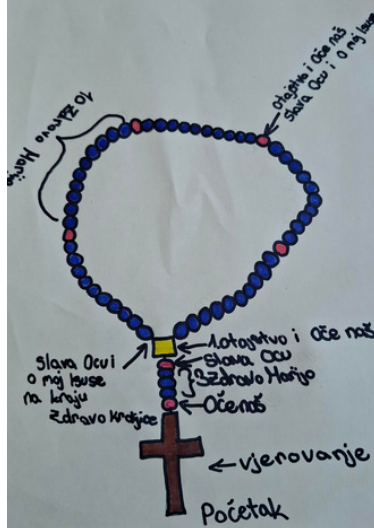 otajstvo i Oče naš
Slava Ocu i O moj Isuse
10 Zdravo Marijo
1. otajstvo i Oče naš
Slava Ocu
3 Zdravo Marijo
Oče naš
Slava Ocu i
O moj Isuse
na kraju
Zdravo Kraljice
vjerovanje
Početak